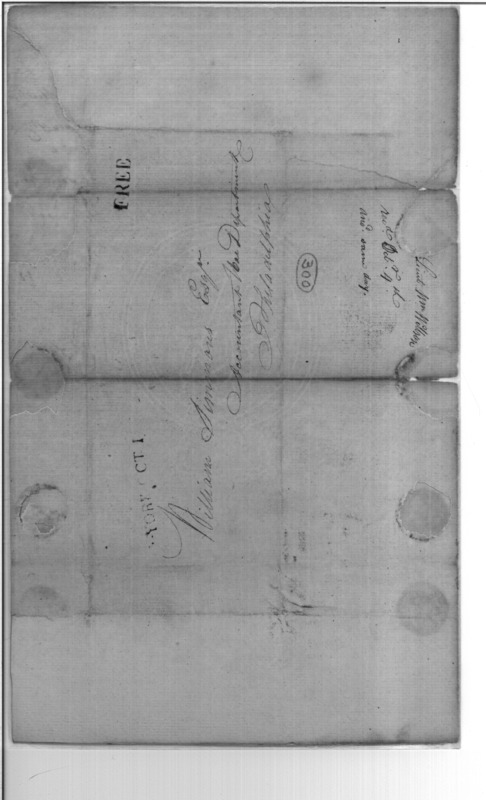 FREE
YORK OCT 1
William Simmons Esqr
Accountant War Department
Philadelphia
300
Lieut Wm Wilson
Oct. 9
same day.